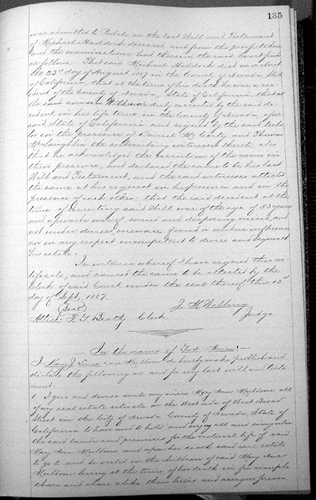 135
was admitted to Probate as the last Will and Testament
of Michael Haddock deceased, and from the proofs taken
and the examination had therein the said Court finds
as follows: That said Michael Haddock died on or about
the 23d day of August 1887 in the County of Nevada State
of California that at the time of his death he was a resi
dent of the County of Nevada, State of California that
the said annexed Will was duly executed by the said de
cedent in his life time in the County of Nevada afore
said State of California and signed by the said testa
tor in the presence of Daniel McCarty and Thomas
McLaughlin the subscribing witnesses thereto, also
that he acknowledged the execution of the same in
their presence, and declared the same to be his last
Will and Testament, and the said witnesses attested
the same at his request in his presence and in the
presence of each other: that the said decedent at the
time of executing said Will was of the age of 53 years
and upwards was of sound and disposing mind, and
not under duress, menace, fraud or undue influence
nor in any respect incompetent to devise and bequeath
his estate.
In witness whereof I have signed this cer
tificate, and caused the same to be attested by the
Clerk of said Court under the seal thereof this 12th
day of Sept. 1887.
(Seal)
Judge
Attest F. G. Beatty Clerk
In the name of God Amen!
I Mary J. do hereby make publish and
declare the following as and for my last will and testa
ment.
1 I give and devise unto my niece Mary Ann Meldrum all
of my real estate situate on the West side of West Broad
Street in the City of Nevada County of Nevada State of
California to have and to hold and enjoy all and singular
the said lands and premises for the natural life of said
Mary Ann Meldrum and upon her death said real estate
to go to and be vested in the children of said Mary Ann
Meldrum living at the time of her death in fee simple
share and share alike their heirs and assigns forever